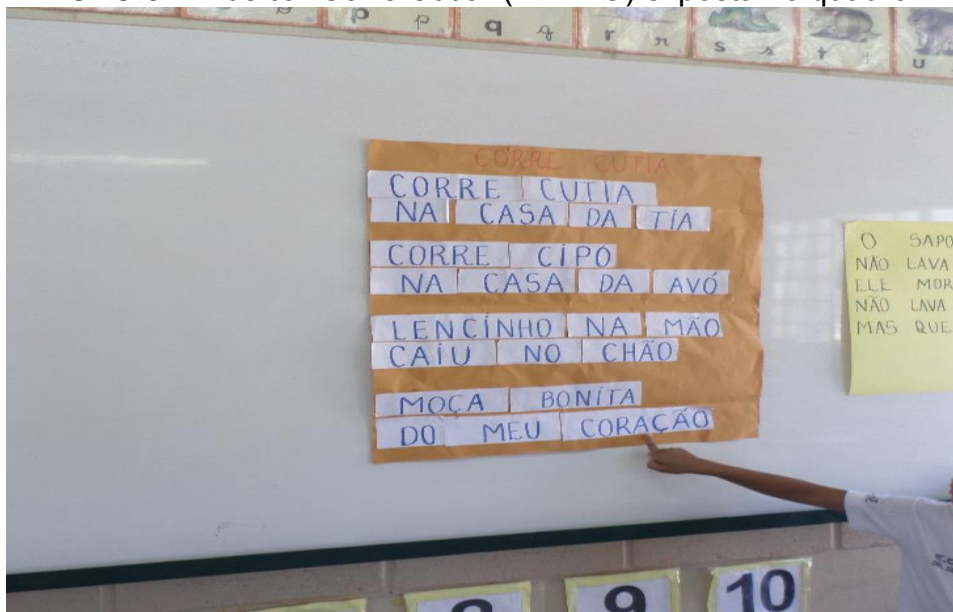 p p q q r r s s t t u
CORRE CUTIA
CORRE CUTIA
NA CASA DA TIA
CORRE CIPO
NA CASA DA AVÓ
LENCINHO NA MÃO
CAIU NO CHÃO
MOÇA BONITA
DO MEU CORAÇÃO
O SAPO
NÃO LAVA
ELE MOR
NÃO LAVA
MAS QUE
8 9 10